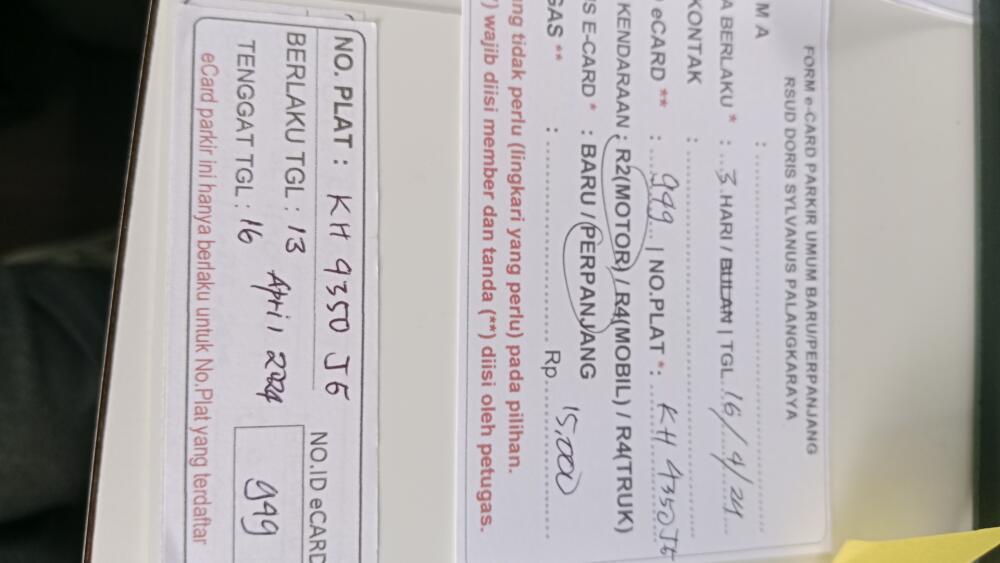 FORM e-CARD PARKIR UMUM BARU/PERPANJANG
RSUD DORIS SYLVANUS PALANGKARAYA
M A : ..........
A BERLAKU * : ...3.HARI / BULAN | TGL. 16/4/24
KONTAK : ..........
eCARD ** : ...949... | NO.PLAT *: ... KH 4350 JG
KENDARAAN : R2(MOTOR) / R4(MOBIL) / R4(TRUK)
S E-CARD * : BARU / PERPANJANG
GAS ** : .......... Rp.......... 15,000
ng tidak perlu (lingkari yang perlu) pada pilihan.
) wajib diisi member dan tanda (**) diisi oleh petugas.
NO. PLAT : KH 9350 JG
BERLAKU TGL : 13 April 2024
TENGGAT TGL : 16
NO.ID eCARD
949
eCard parkir ini hanya berlaku untuk No.Plat yang terdaftar